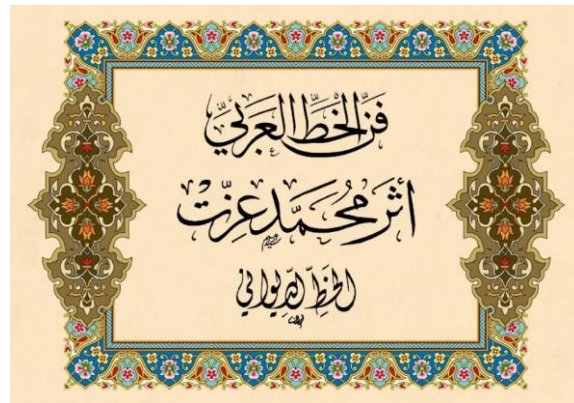 فن الخط العربي
أثر محمد عزت
الخط الديواني